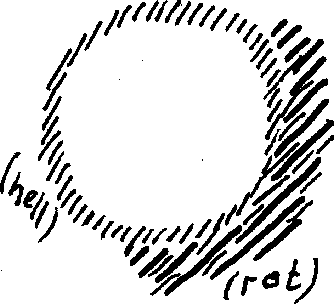 (hell)
(rot)